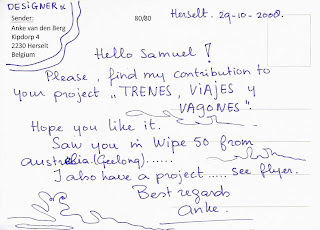 DESIGNER
Sender:
Anke van den Berg
Kipdorp 4
2230 Herselt
Belgium
80/80
Herselt. 29-10-2008.
Hello Samuel!
Please, find my contribution to
your project „TRENES, VIAJES y
VAGONES".
Hope you like it.
Saw you in Wipe 50 from
australia.(Geelong)......
I also have a project ..... see flyer.
Best regards
Anke.